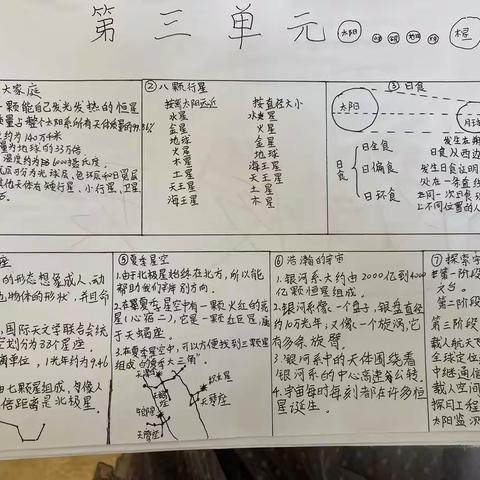 第三单元
太阳
木星
大家庭
一颗能自己发光发热的恒星
质量占整个太阳系所有天体质量的99.86%
约为140万千米
为地球的33万倍
② 八颗行星
按离太阳远近
水星
金星
地球
火星
木星
土星
天王星
海王星
按直径大小
水星
火星
金星
地球
海王星
天王星
土星
木星
③ 日食
太阳
月球
日食
日全食
日偏食
日环食
发生在
日食从西边
发生日食证明
处在一条直线
在同一次日食
上不同位置的人
座
的形态想象成人、动
物体的形状,并且命
国际天文学联合会统
划为88个星座。
单位,1光年约为9.46
七颗星组成,勺像人
倍距离是北极星
⑤ 夏季星空
1.由于北极星始终在北方,所以能
帮助我们辨别方向。
2.在夏季星空中有一颗火红的亮
星(心宿二),它是一颗近巨星,属
于天蝎座。
3.在夏季星空中,可以方便找到三颗星
组成的"夏季大三角"
天琴座
天鹰座
⑥ 浩瀚的宇宙
1.银河系大约由2000亿到4000
亿颗恒星组成。
2.银河系像一个盘子,银盘直径
约10万光年,又像一个旋涡,它
有多条旋臂。
3.银河系中的天体围绕着
银河系的中心高速着公转。
4.宇宙每时每刻都在许多恒
星诞生。
⑦ 探索宇
第一阶段
第二阶段
第三阶段
载人航天
全球定位
中继通信
载人空间
探月工程
太阳监测